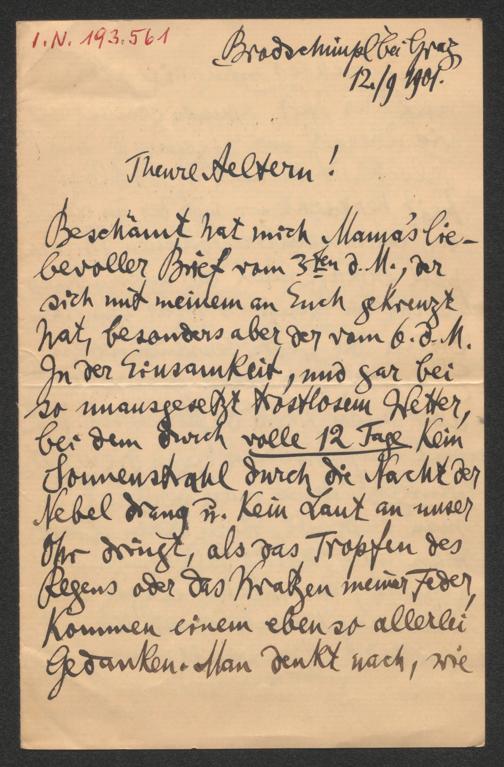 I.N. 193.561
Brodschimpl bei Graz
12./9 1901.
Theure Aeltern!
Beschämt hat mich Mama's lie-
bevoller Brief vom 3ten d. M., der
sich mit meinem an Euch gekreuzt
hat, besonders aber der vom 6. d. M.
In der Einsamkeit, und gar bei
so unausgesetzt trostlosem Wetter,
bei dem durch volle 12 Tage kein
Sonnenstrahl durch die Nacht der
Nebel drang u. kein Laut an unser
Ohr dringt, als das Tropfen des
Regens oder das Kratzen meiner Feder,
kommen einem eben so allerlei
Gedanken. Man denkt nach, wie